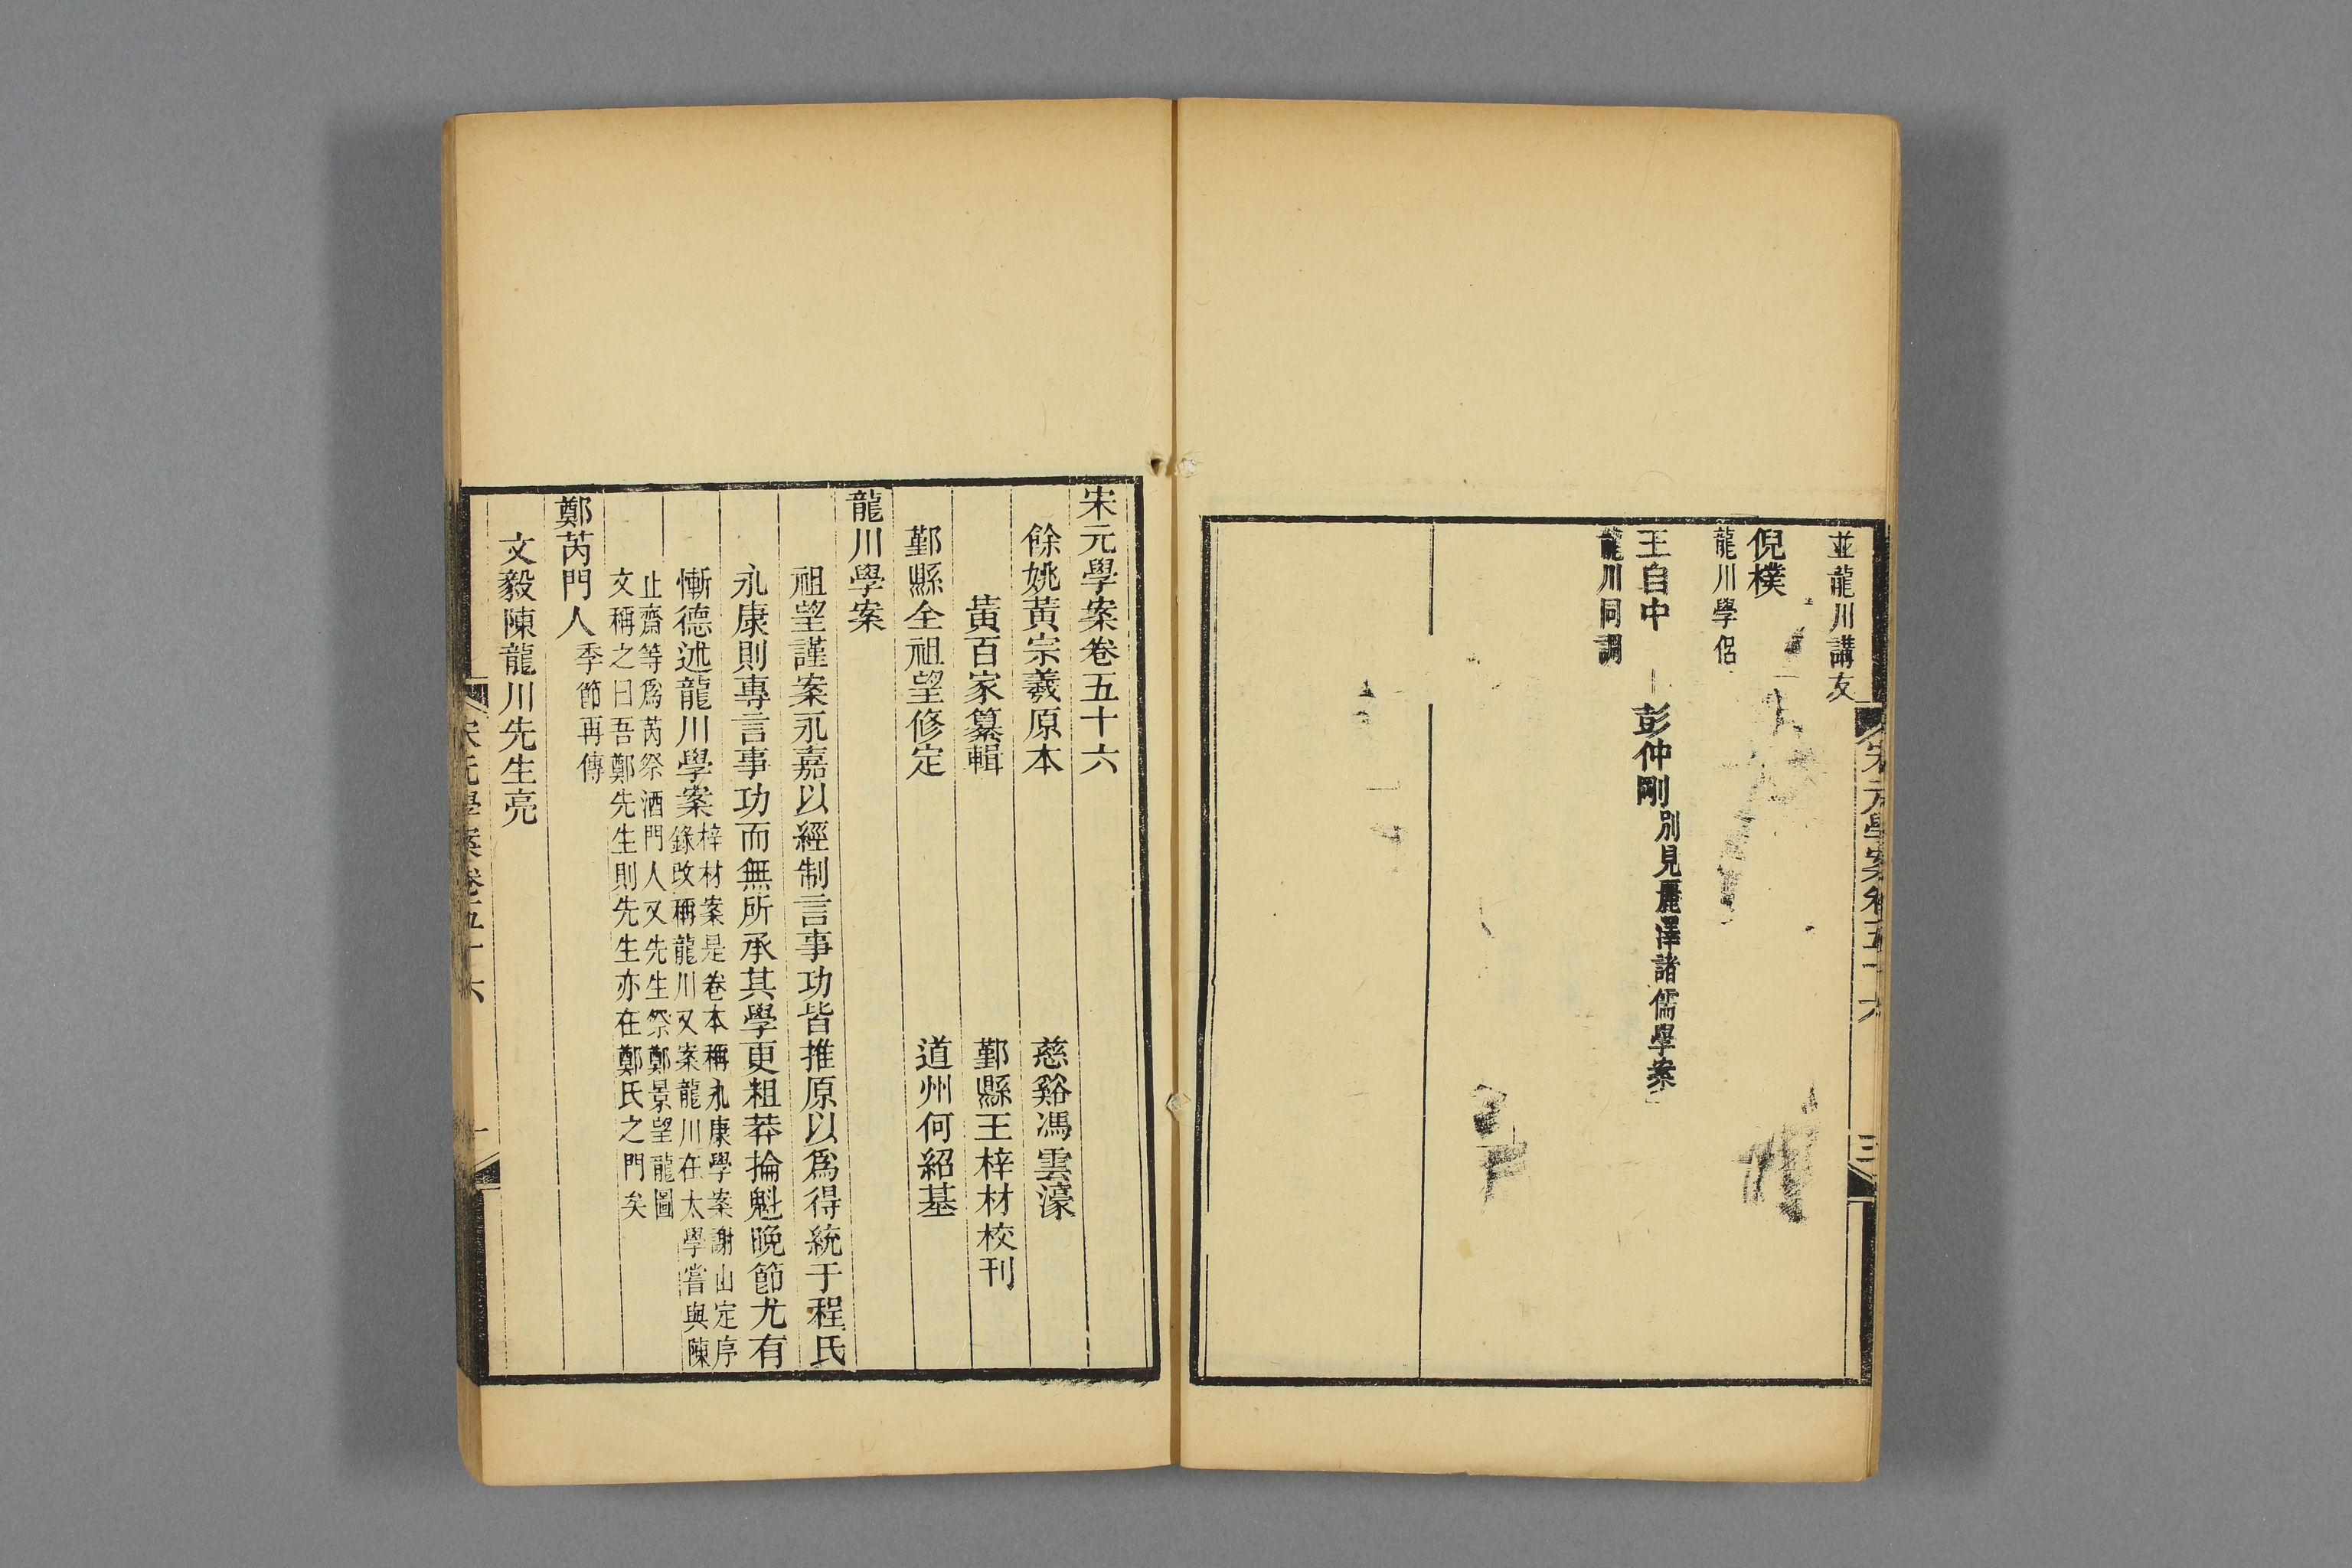 並龍川講友
倪樸
龍川學侶
王自中
彭仲剛別見麗澤諸儒學案
龍川同調
宋元學案卷五十六
宋元學案卷五十六
餘姚黃宗羲原本
慈谿馮雲濠
黃百家纂輯
鄞縣王梓材校刊
鄞縣全祖望修定
道州何紹基
龍川學案
祖望謹案永嘉以經制言事功皆推原以爲得統于程氏
永康則專言事功而無所承其學更粗莽掄魁晚節尤有
慚德述龍川學案
梓材案是卷本稱永康學案謝山定序
錄改稱龍川又案龍川在太學嘗與陳
止齋等爲芮祭酒門人又先生祭鄭景望龍圖
文稱之曰吾鄭先生則先生亦在鄭氏之門矣
鄭芮門人季節再傳
文毅陳龍川先生亮
宋元學案卷五十六